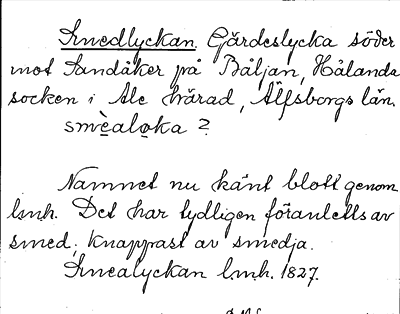 Smedlyckan. Gärdeslycka söder
mot Sandåker på Båljan, Hålanda
socken i Ale härad, Älfsborgs län.
smèaloka ?
Namnet nu känt blott genom
lmh. Det har tydligen föranletts av
smed, knappast av smedja.
Smealyckan lmh. 1827.